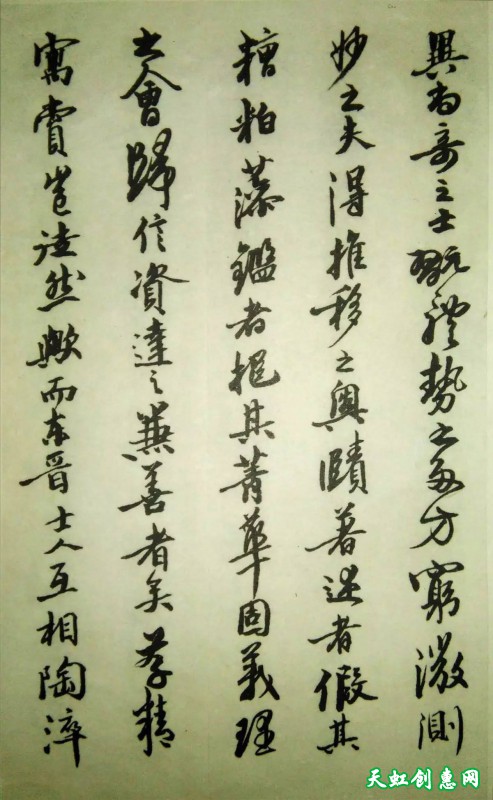 異尚奇之士翫體勢之多方窮微測
妙之夫得推移之奧賾著述者假其
糟粕藻鑑者挹其菁華固義理
之會歸信資達之兼善者矣存精
寓賞豈徒然歟而东晉士人互相陶淬
天虹创惠网